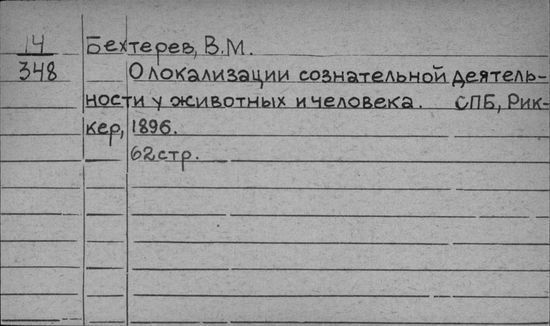 14 Бехтерев, В.М.
348 О локализации сознательной деятель-
ности у животных и человека. СПБ, Рик-
кер, 1896.
62 стр.